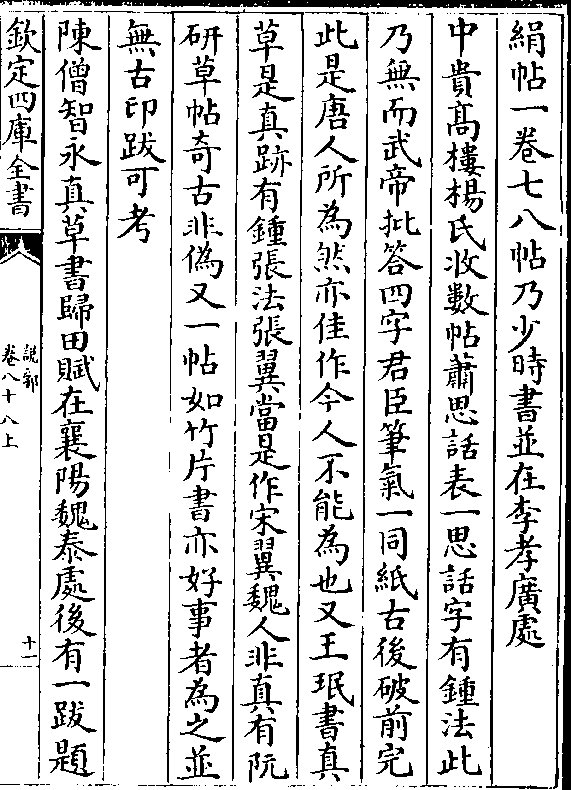 絹帖一卷七八帖乃少時書並在李孝廣處
中貴髙樓楊氏收數帖蕭思話表一思話字有鍾法此
乃無而武帝批答四字君臣筆氣一同紙古後破前完
此是唐人所為然亦佳作今人不能為也又王珉書真
草是真跡有鍾張法張翼當是作宋翼魏人非真有阮
研草帖奇古非偽又一帖如竹片書亦好事者為之並
無古印跋可考
陳僧智永真草書歸田賦在襄陽魏泰處後有一跋題
欽定四庫全書
說郛
卷八十八上
十一